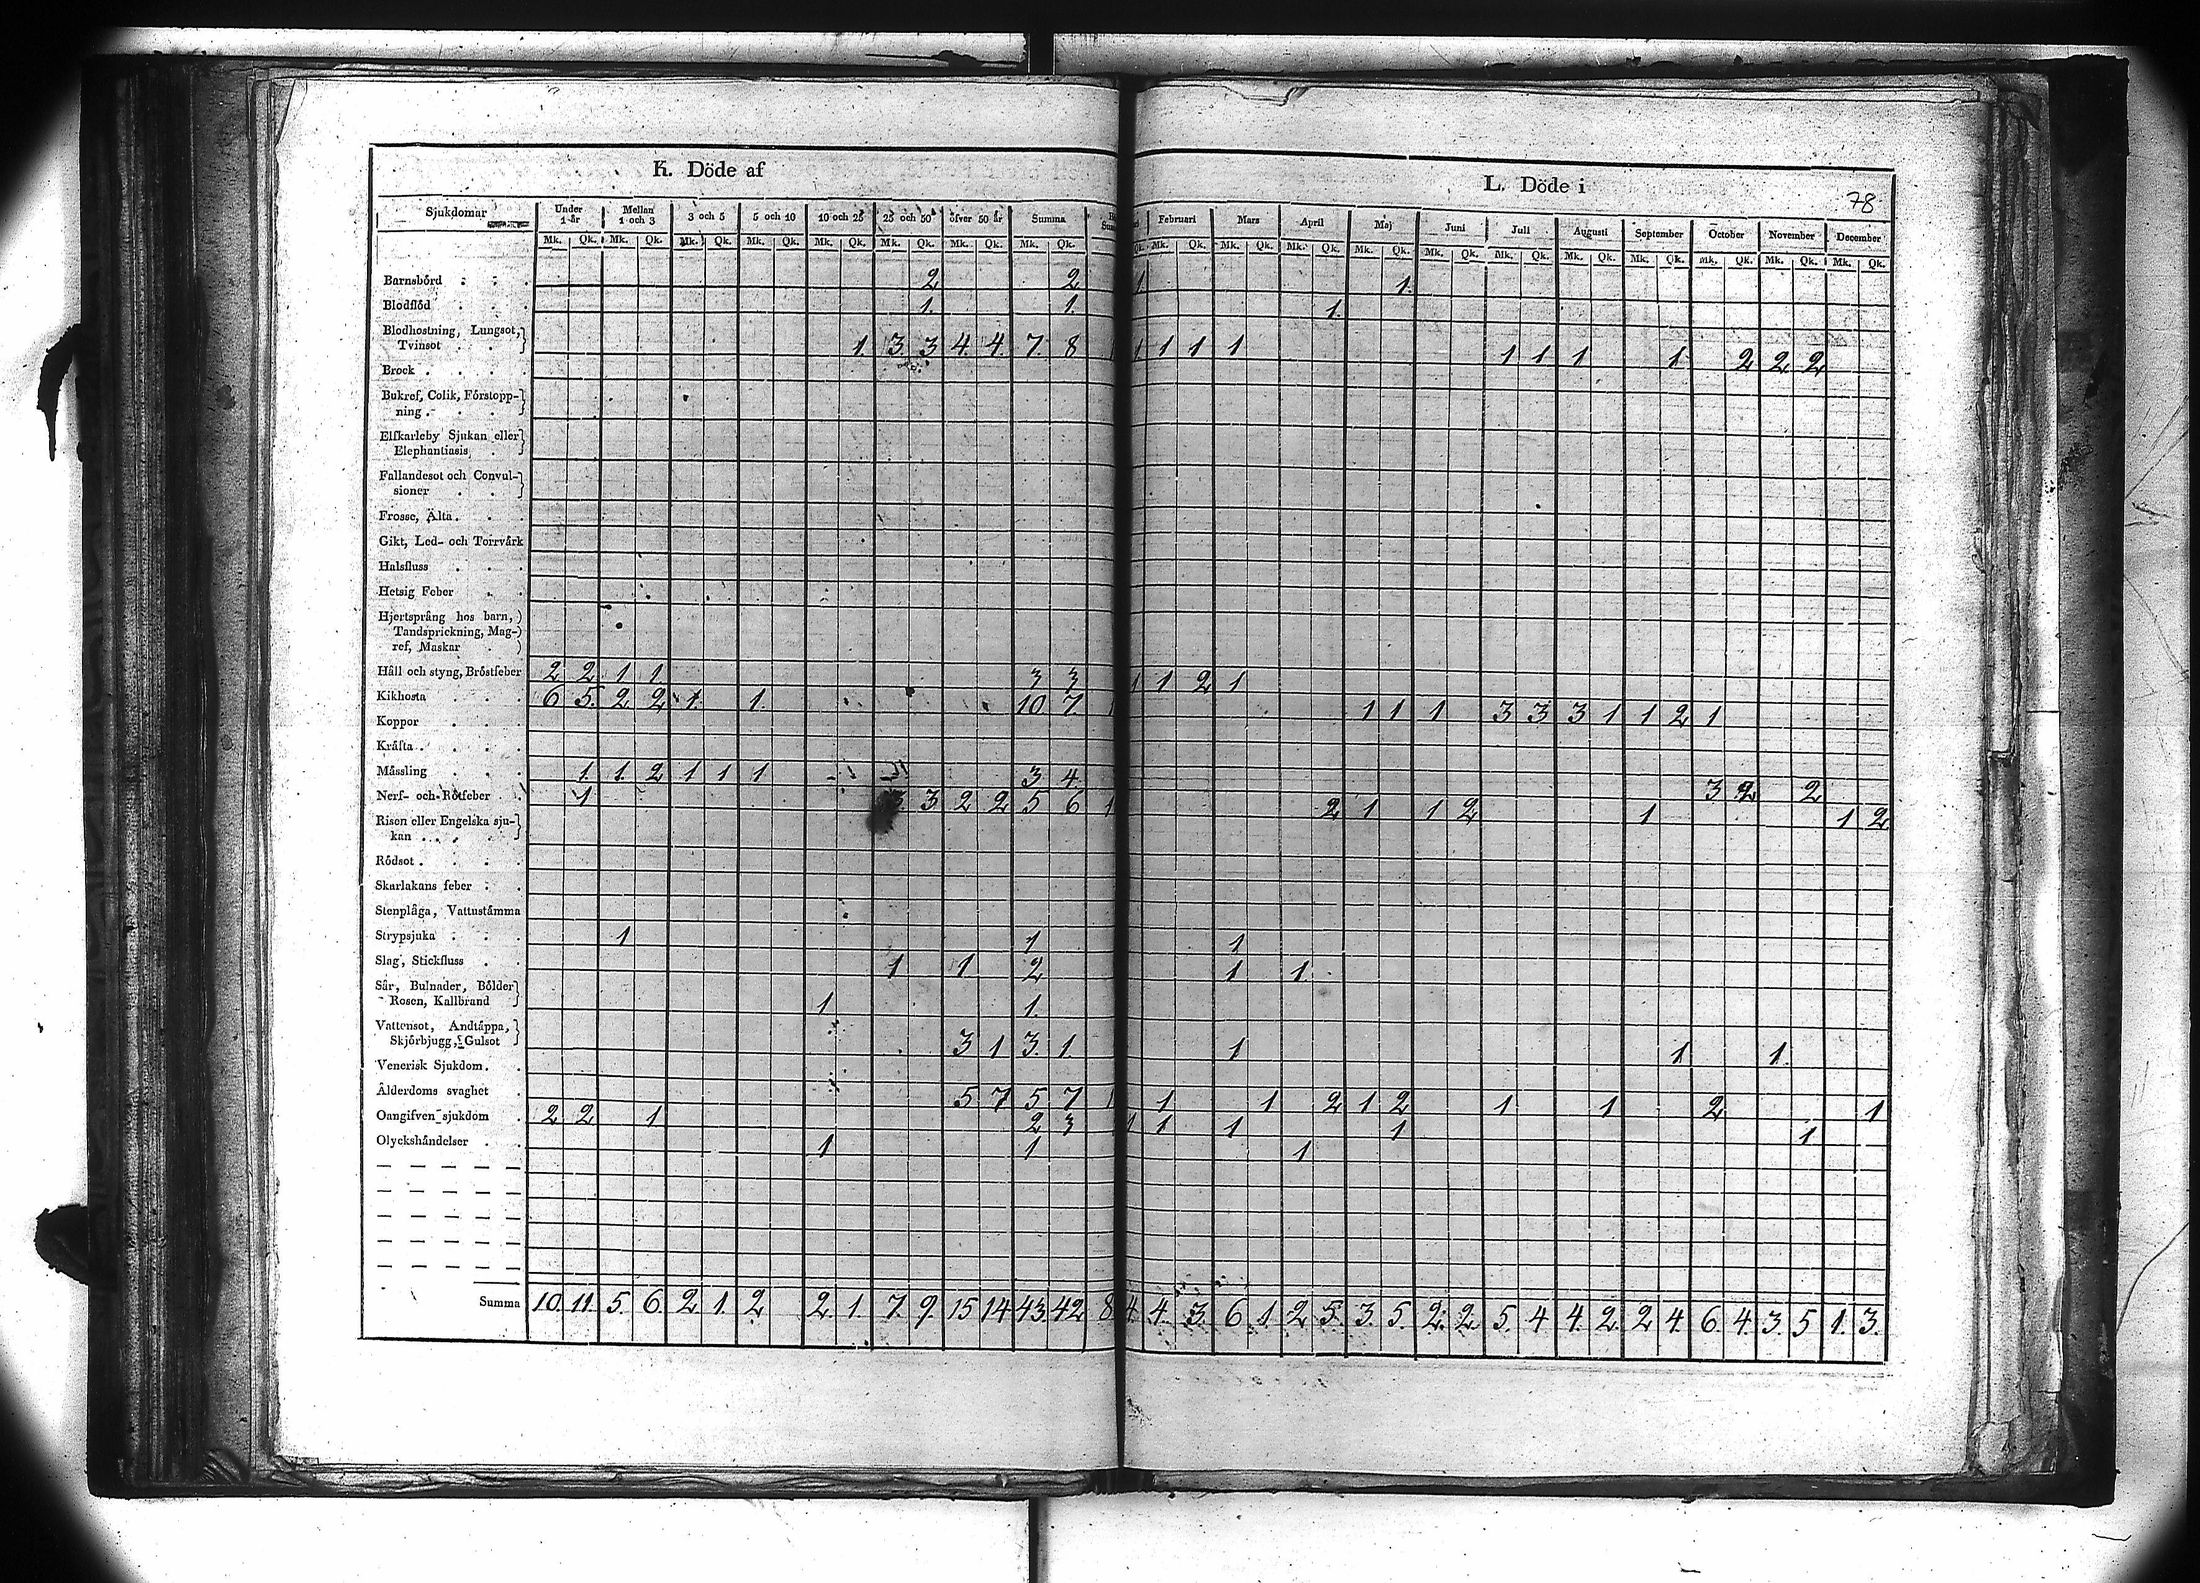 K. Döde af
L. Döde i
78.
Sjukdomar Under 1 år Mellan 1 och 3 3 och 5 5 och 10 10 och 25 25 och 50 öfver 50 år Summa Februari Mars April Maj Juni Juli Augusti September October November December
Mk. Qk. Mk. Qk. Mk. Qk. Mk. Qk. Mk. Qk. Mk. Qk. Mk. Qk. Mk. Qk. Qk. Mk. Qk. Mk. Qk. Mk. Qk. Mk. Qk. Mk. Qk. Mk. Qk. Mk. Qk. Mk. Qk. Mk. Qk. Mk. Qk. Mk. Qk.
Barnsbörd 2 2 1 1.
Blodflöd 1. 1. 1.
Blodhostning, Lungsot,
Tvinsot 1. 3. 3 4. 4. 7. 8 1 1 1 1 1 1 1 1 1 2 2 2
Brock
Bukref, Colik, Förstopp-
ning
Elfkarleby Sjukan eller
Elephantiasis
Fallandesot och Convul-
sioner
Frosse, Älta
Gikt, Led- och Torrvärk
Halsfluss
Hetsig Feber
Hjertsprång hos barn,
Tandsprickning, Mag-
ref, Maskar
Håll och styng, Bröstfeber 2 2 1 1 3 3 1 1 2 1
Kikhosta 6 5. 2 2 1. 1. 10 7 1 1 1 1 3 3 3 1 1 2 1
Koppor
Kräfta
Mässling 1. 1. 2 1 1 1 3 4 3 2 2
Nerf- och Rötfeber 1 3 3 2 2 5 6 1 2 1 1 2 1 1 2
Risen eller Engelska sju-
kan
Rödsot
Skarlakans feber
Stenplåga, Vattustämma
Strypsjuka 1 1 1
Slag, Stickfluss 1 1 2 1 1.
Sår, Bulnader, Bölder
Rosen, Kallbrand 1 1.
Vattensot, Andtäppa,
Skjörbjugg, Gulsot 3 1 3. 1. 1 1 1.
Venerisk Sjukdom.
Ålderdoms svaghet 5 7 5 7 1 1 1 2 1 2 1 1 2 1
Oangifven sjukdom 2 2 1 2 3 1 1 1 1 1
Olyckshändelser 1 1 1
Summa 10. 11. 5. 6. 2 1. 2 2. 1. 7. 9. 15 14 43. 42 8. 4. 4. 3. 6 1. 2 5. 3. 5. 2. 2. 5. 4 4. 2. 2 4. 6. 4. 3. 5 1. 3.